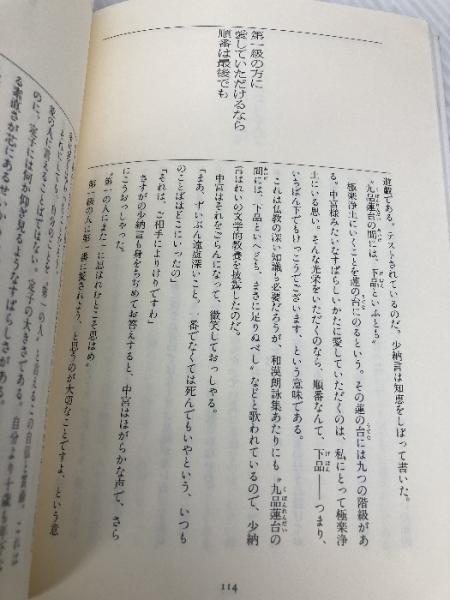 第一級の方に
愛していただけるなら
順番は最後でも
遊戯である。テストされているのだ。少納言は知恵をしぼって書いた。
〝九品蓮台の間には、下品といふとも〟
極楽浄土にいくことを蓮の台にのるという。その蓮の台には九つの階級があ
る。〝中宮様みたいなすばらしいかたに愛していただくのは、私にとって極楽浄
土にいる思い。そんな光栄をいただくのなら、順番なんて、下品——つまり、
いちばん下でもけっこうでございます、という意味である。
これは仏教の深い知識も必要だろうが、和漢朗詠集あたりにも〝九品蓮台の
間には、下品といへども、まさに足りぬべし〟などと歌われているので、少納
言はれいの文学的教養を披露したのだ。
中宮はそれをごらんになって、微笑しておっしゃる。
「まあ、ずいぶん遠慮深いこと。一番でなくては死んでもいやという、いつも
のことばはどこにいったの」
「それは、ご相手によりけりですわ」
さすがの少納言も身をちぢめてお答えすると、中宮はほがらかな声で、さら
にこうおっしゃった。
〝第一の人にまた一に思はれむとこそ思はめ〟
第一級の人に第一番に愛されよう、と思うのが大切なことですよ、という意
114
のに、定子には何か仰ぎ見るようなすばらしさがある。
る素直さが元にあるせい